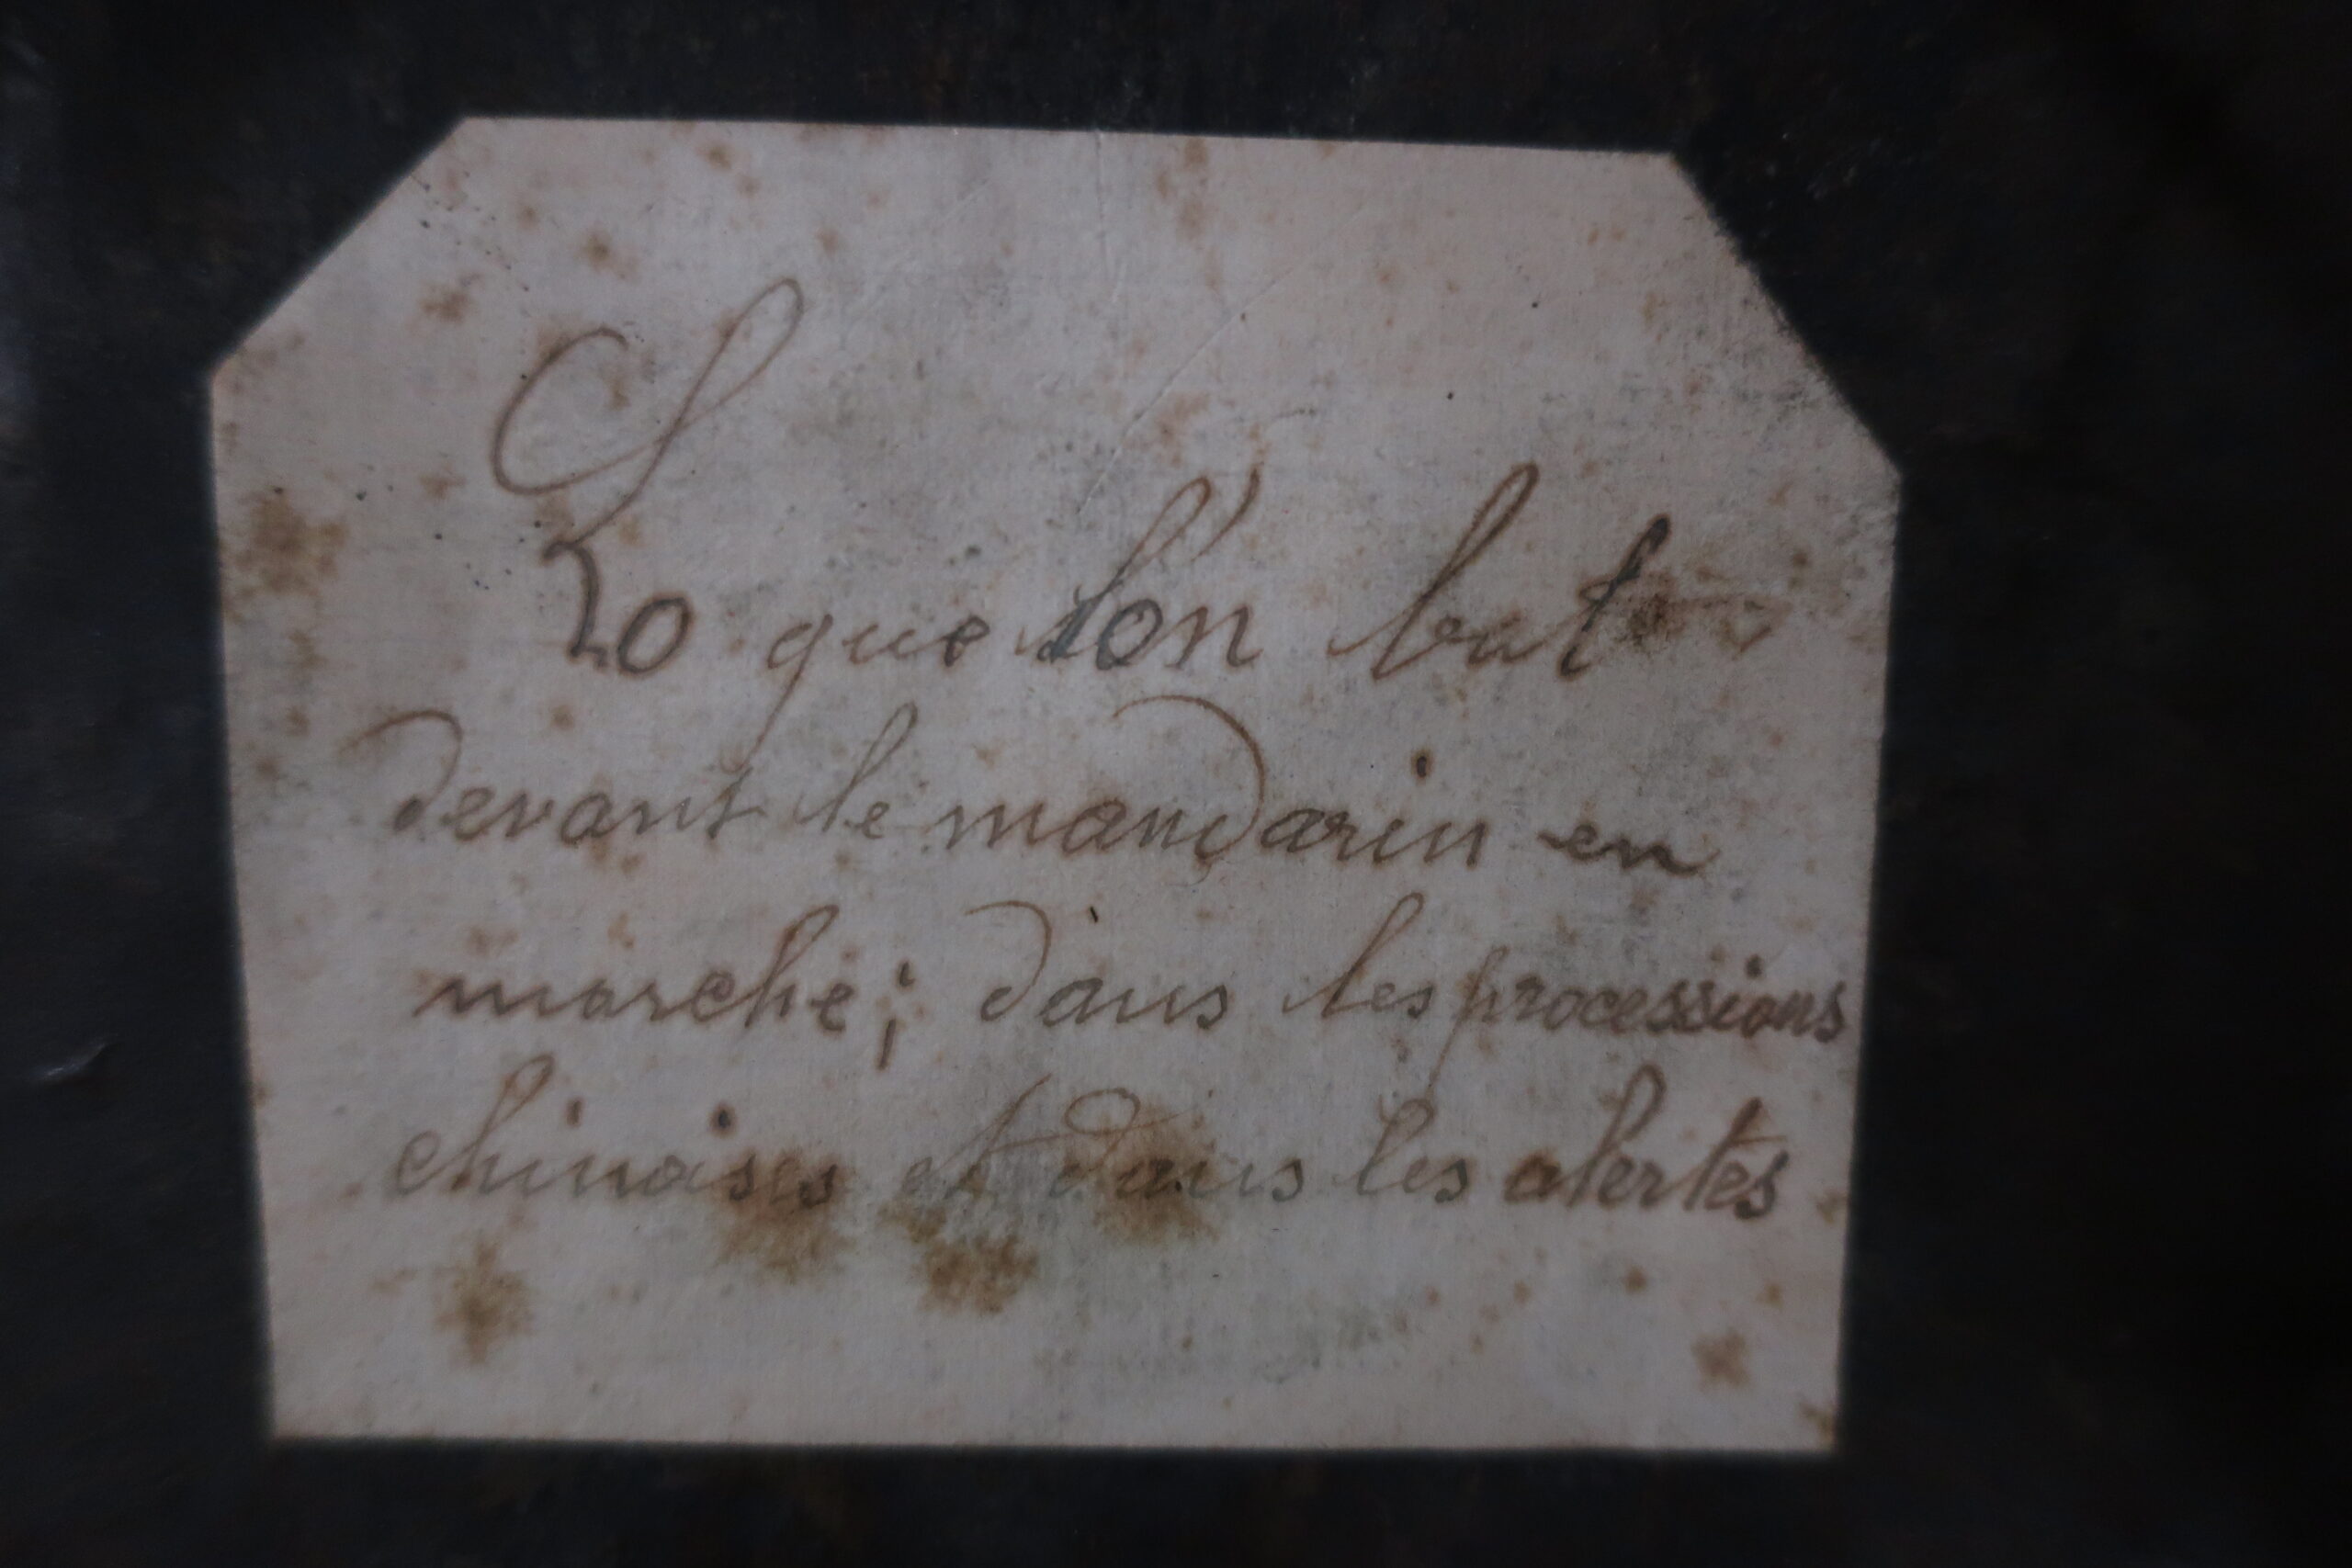 Lo que l'on bat
devant le mandarin en
marche; dans les processions
chinoises et dans les alertes